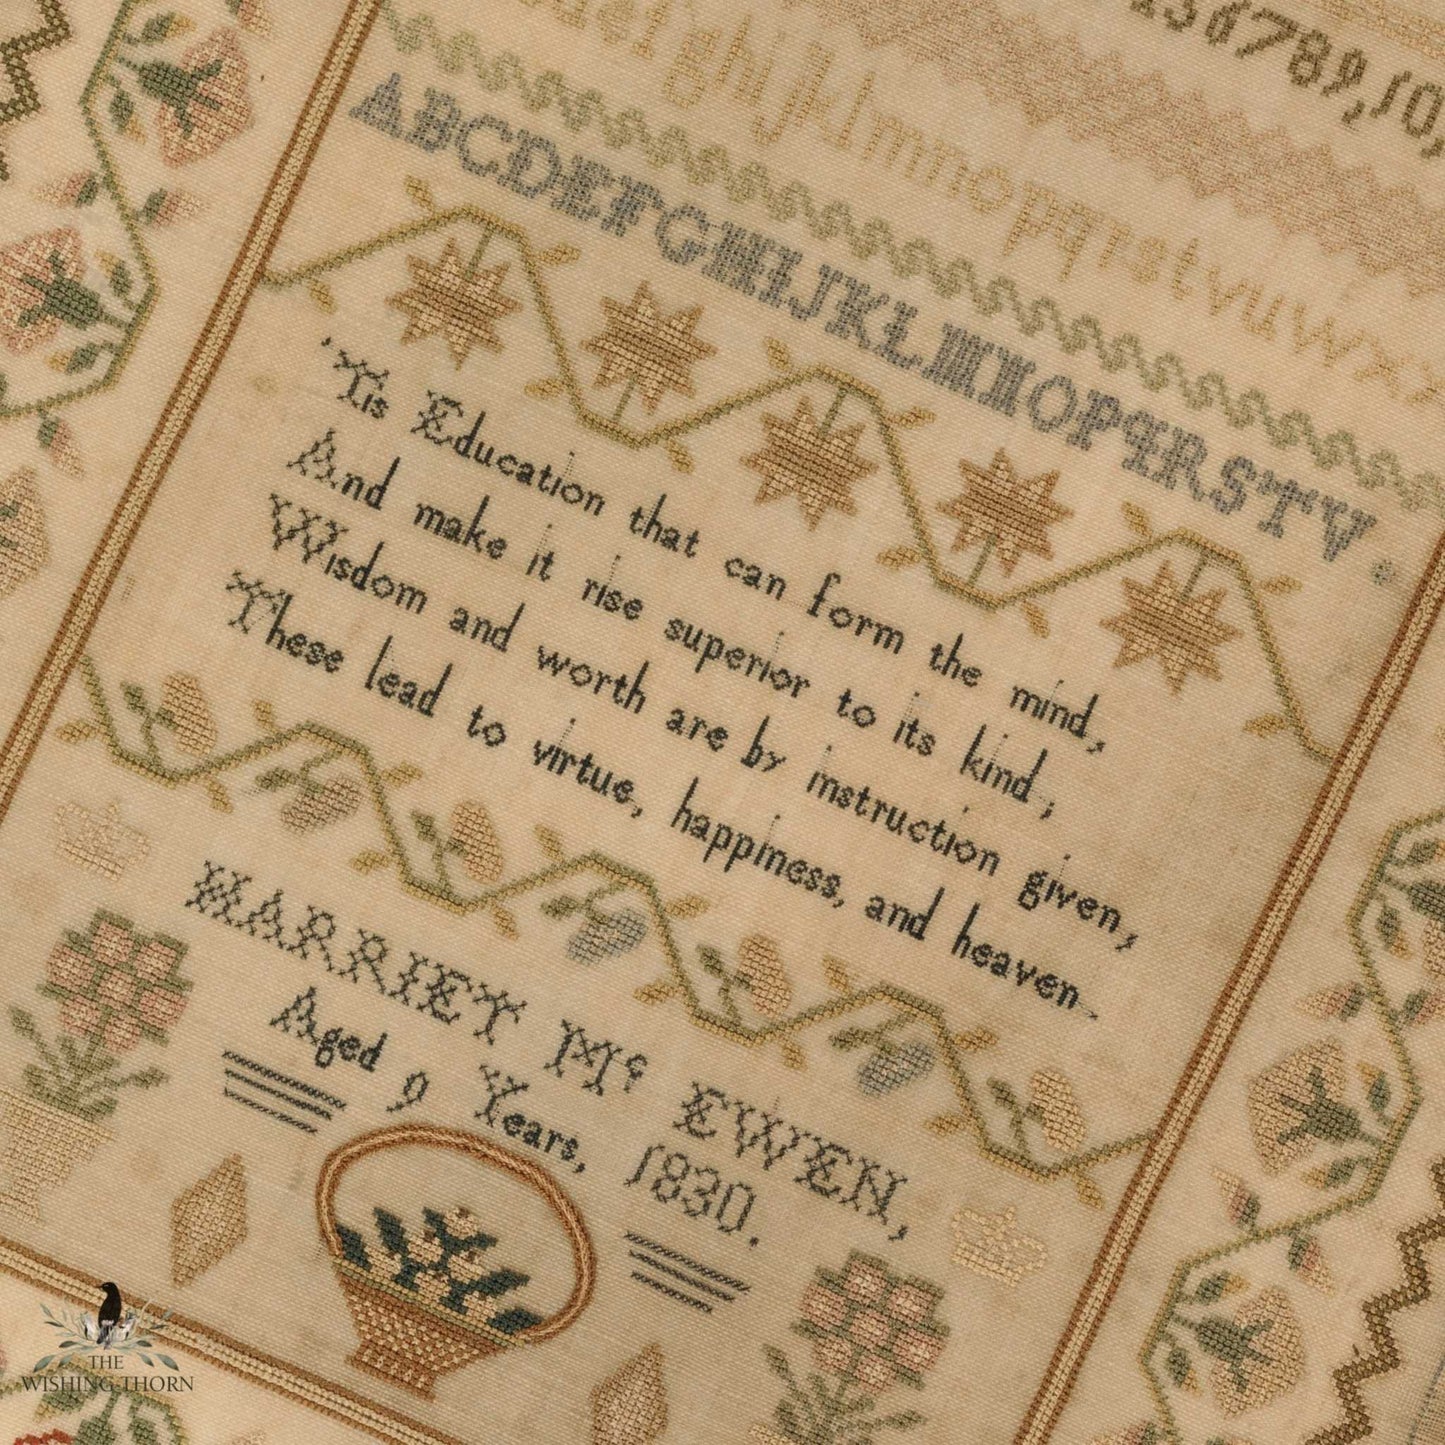 456789,10,
efghijklmnopqrstvuwxy
ABCDEFGHIJKLMNOPQRSTV
'Tis Education that can form the mind,
And make it rise superior to its kind,
Wisdom and worth are by instruction given,
These lead to virtue, happiness, and heaven
HARRIET Mc EWEN,
Aged 9 Years, 1830.
THE
WISHING THORN